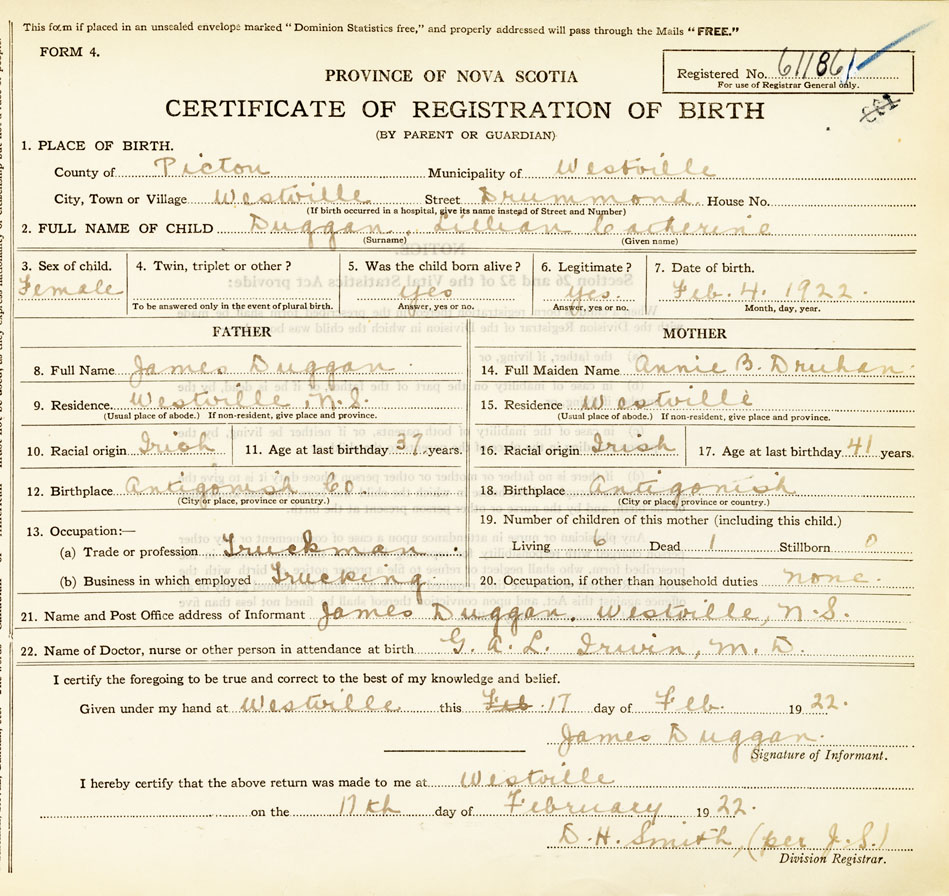 This form if placed in an unsealed envelope marked "Dominion Statistics free," and properly addressed will pass through the Mails "FREE."
FORM 4.
Registered No. 611861
For use of Registrar General only.
PROVINCE OF NOVA SCOTIA
CERTIFICATE OF REGISTRATION OF BIRTH
(BY PARENT OR GUARDIAN)
1. PLACE OF BIRTH.
County of Pictou Municipality of Westville
City, Town or Village Westville Street Drummond House No.
(If birth occurred in a hospital, give its name instead of Street and Number)
2. FULL NAME OF CHILD Duggan, Lillian Catherine
(Surname) (Given name)
3. Sex of child. Female
4. Twin, triplet or other?
To be answered only in the event of plural birth.
5. Was the child born alive?
Yes
Answer, yes or no.
6. Legitimate?
Yes.
Answer, yes or no.
7. Date of birth.
Feb. 4. 1922.
Month, day, year.
FATHER
8. Full Name James Duggan
9. Residence Westville, N.S.
(Usual place of abode.) If non-resident, give place and province.
10. Racial origin Irish 11. Age at last birthday 37 years.
12. Birthplace Antigonish Co.
(City or place, province or country.)
13. Occupation:—
(a) Trade or profession Truckman
(b) Business in which employed Trucking
MOTHER
14. Full Maiden Name Annie B. Druhan
15. Residence Westville
(Usual place of abode.) If non-resident, give place and province.
16. Racial origin Irish 17. Age at last birthday 41 years.
18. Birthplace Antigonish
(City or place, province or country.)
19. Number of children of this mother (including this child.)
Living 6 Dead 1 Stillborn 0
20. Occupation, if other than household duties none.
21. Name and Post Office address of Informant James Duggan, Westville, N.S.
22. Name of Doctor, nurse or other person in attendance at birth G. A. L. Irwin, M. D.
I certify the foregoing to be true and correct to the best of my knowledge and belief.
Given under my hand at Westville this Feb 17 day of Feb. 1922.
James Duggan.
Signature of Informant.
I hereby certify that the above return was made to me at Westville
on the 17th day of February 1922.
D. H. Smith, (per J. S.)
Division Registrar.